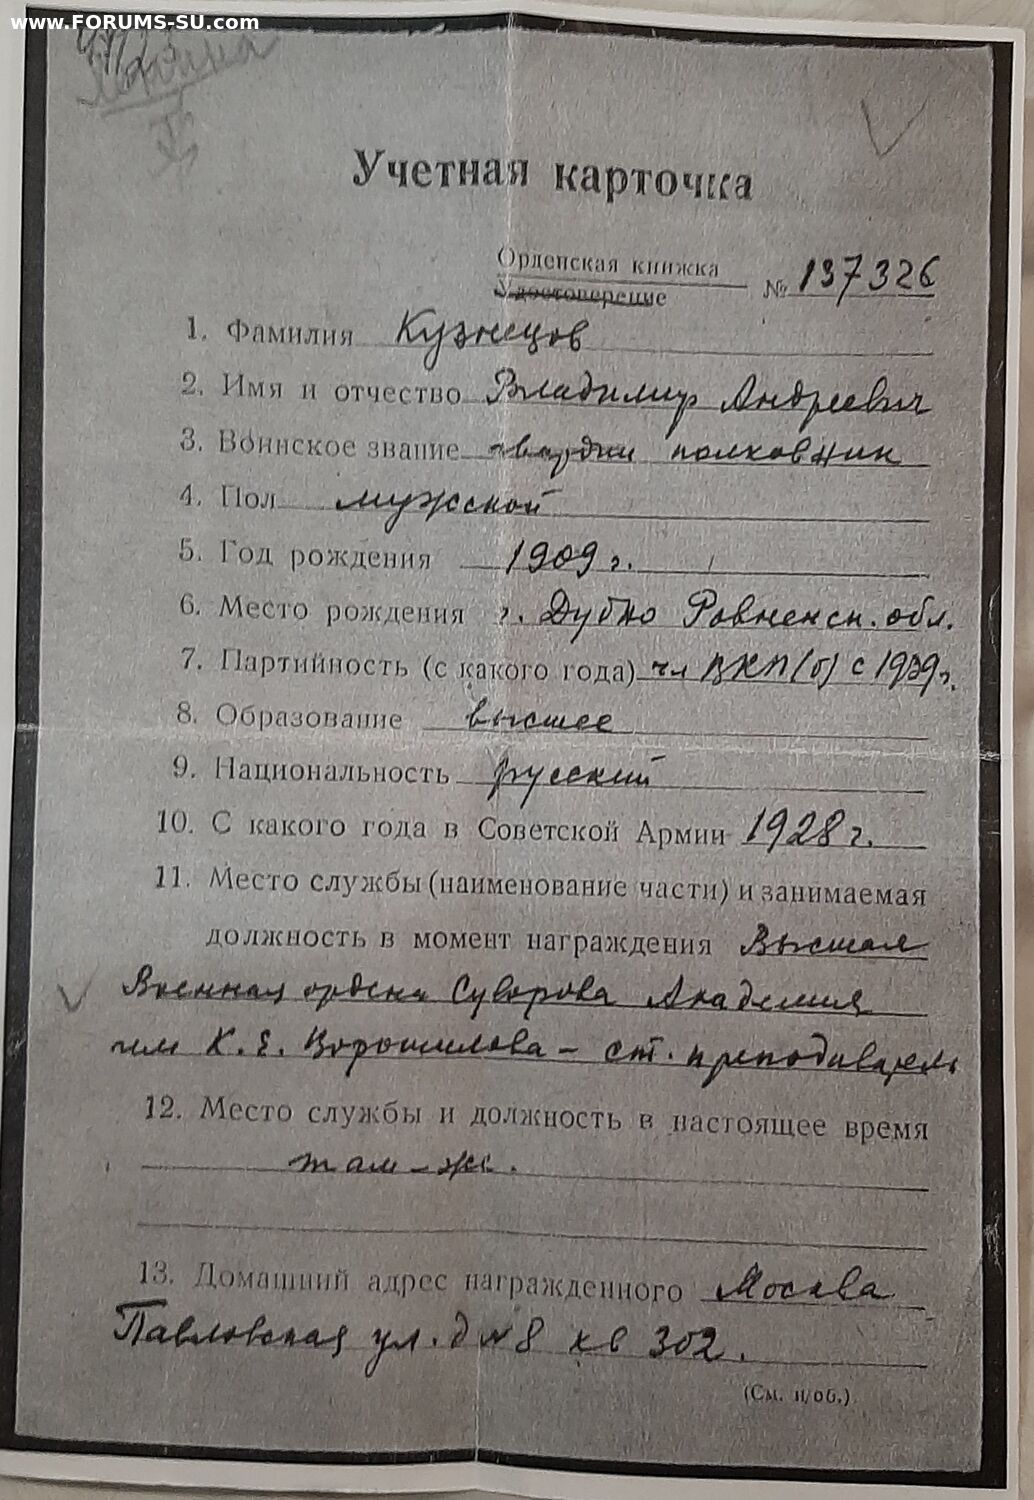 www.FORUMS-SU.com
Учетная карточка
Орденская книжка
Удостоверение
№ 137326
1. Фамилия Кузнецов
2. Имя и отчество Владимир Андреевич
3. Воинское звание гвардии полковник
4. Пол мужской
5. Год рождения 1909 г.
6. Место рождения г. Дубно Ровненск. обл.
7. Партийность (с какого года) чл ВКП(б) с 1939 г.
8. Образование высшее
9. Национальность русский
10. С какого года в Советской Армии 1928 г.
11. Место службы (наименование части) и занимаемая
должность в момент награждения Высшая
Военная ордена Суворова Академия
им К. Е. Ворошилова – ст. преподаватель
12. Место службы и должность в настоящее время
там – же.
13. Домашний адрес награжденного Москва
Павловская ул. д № 8 кв 302.
(См. н/об.)